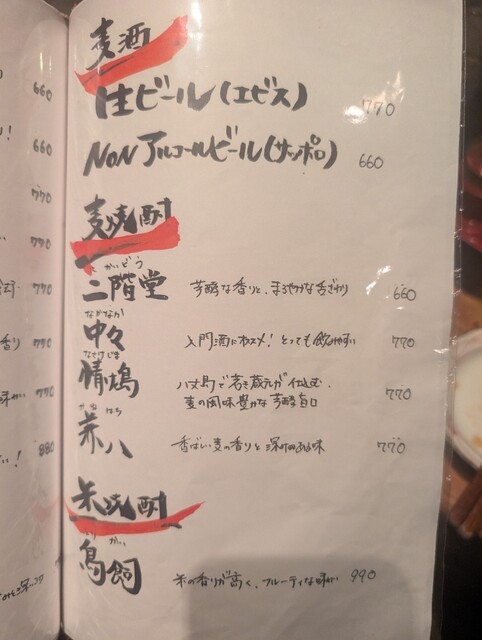 麦酒
生ビール(エビス) 770
NON アルコールビール(サッポロ) 660
麦焼酎
にかいどう
二階堂 芳醇な香りと、まろやかな舌ざわり 660
なかなか
中々 入門酒にオススメ! とっても飲みやすい 770
なさけじま
情嶋 八丈島で若き蔵元が仕込む、 770
麦の風味豊かな芳醇旨口
かねはち
兼八 香ばしい麦の香りと深みのある味 770
米焼酎
とりかい
鳥飼 米の香りが高く、フルーティな味わい 990
660
660
770
770
770
香り 770
味わい 770
い! 880